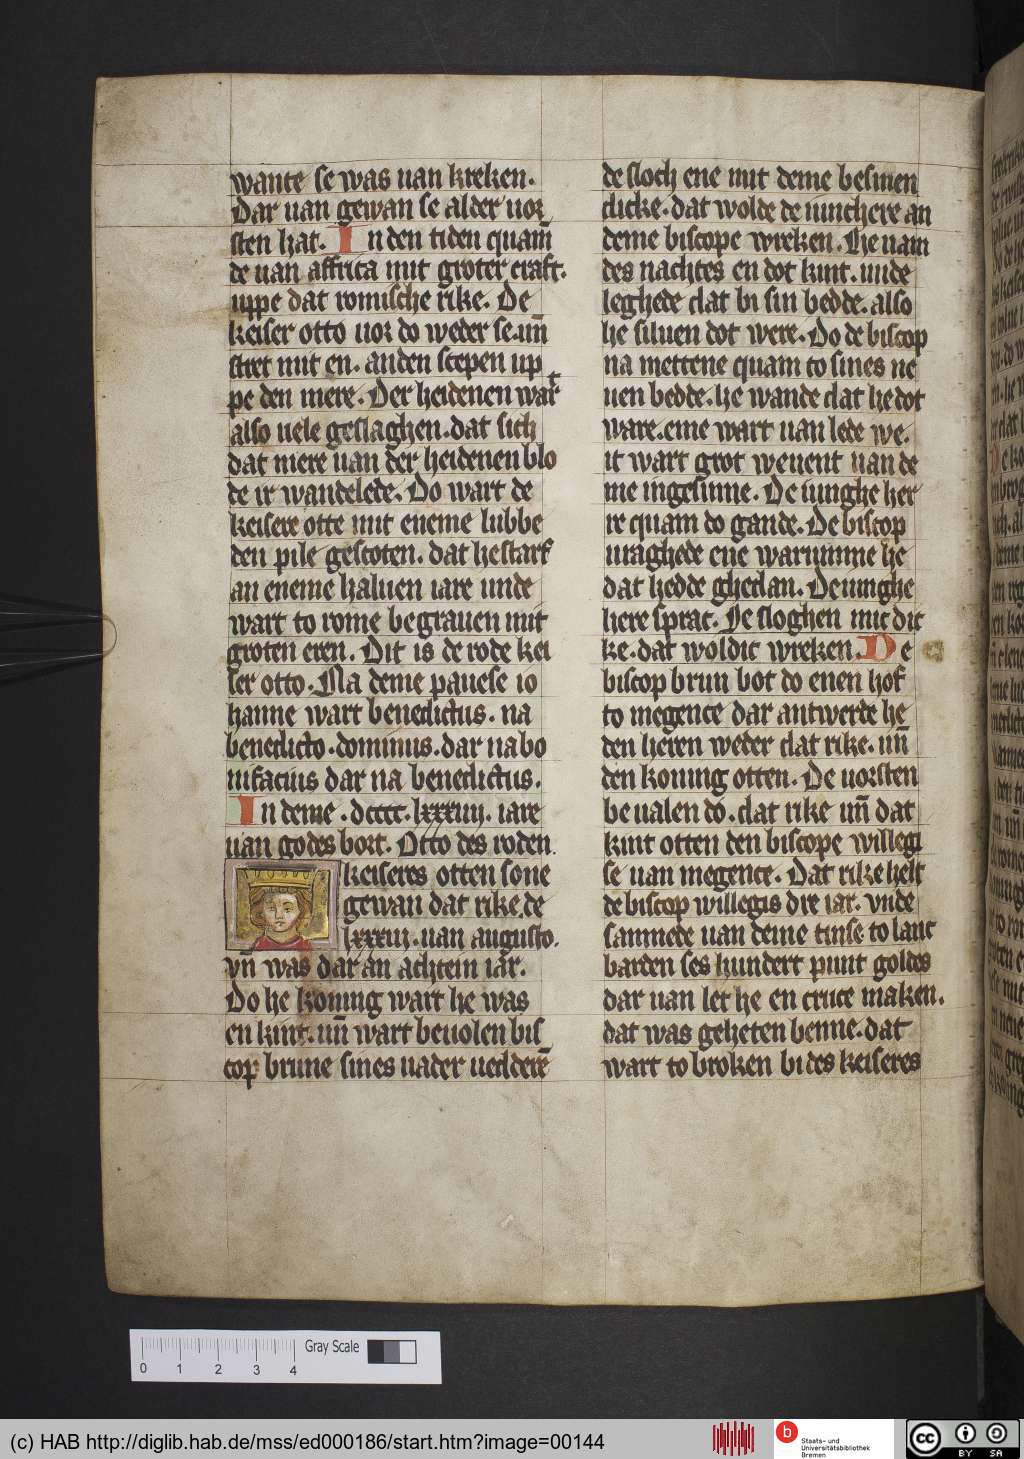 wante se was uan kreken.
Dar uan gewan se alder uor
sten hat. In den tiden quam̄
de uan affrica mit groter craft.
uppe dat romische rike. De
keiser otto uor do weder se. un̄
stret mit en. an den scepen up
pe den mere. Der heidenen wart
also uele geslaghen. dat sich
dat mere uan der heidenen blo
de ir wandelede. Do wart de
keisere otte mit eneme lubbe
den pile gescoten. dat he starf
an eneme haluen iare unde
wart to rome begrauen mit
groten eren. Dit is de rode kei
ser otto. Na deme pauese io
hanne wart benedictus. na
benedicto. dominus. dar na bo
nifacius dar na benedictus.
In deme. dcccc. lxxxiiij. iare
uan godes bort. Otto des roden
keiseres otten sone
gewan dat rike. de
lxxxiij. uan augusto.
vn̄ was dar an achtein iar.
Do he koning wart he was
en kint. un̄ wart beuolen bis
cop brune sines uader uedderē
de sloch ene mit deme besmen
dicke. dat wolde de iunchere an
deme biscope wreken. He nam
des nachtes en dot kint. unde
leghede dat bi sin bedde. also
he siluen dot were. Do de biscop
na mettene quam to sines ne
uen bedde. he wande dat he dot
ware. eme wart uan lede we.
it wart grot weuent uan de
me ingesinne. De iunghe her
re quam do gande. De biscop
uraghede ene warumme he
dat hedde ghedan. De iunghe
here sprac. Je sloghen mic dic
ke. dat wold ic wreken. De
biscop brun bot do enen hof
to megence dar antwerde he
den heren weder dat rike. un̄
den koning otten. De uorsten
beualen do. dat rike un̄ dat
kint otten den biscope willegi
se uan megence. Dat rike helt
de biscop willegis dre iar. vnde
samnede uan deme tinse to lanc
barden ses hundert punt goldes
dar uan let he en cruce maken.
dat was geheten benne. dat
wart to broken bi des keiseres
0 1 2 3 4
Gray Scale
(c) HAB http://diglib.hab.de/mss/ed000186/start.htm?image=00144
b
Staats- und
Universitätsbibliothek
Bremen
cc
BY SA